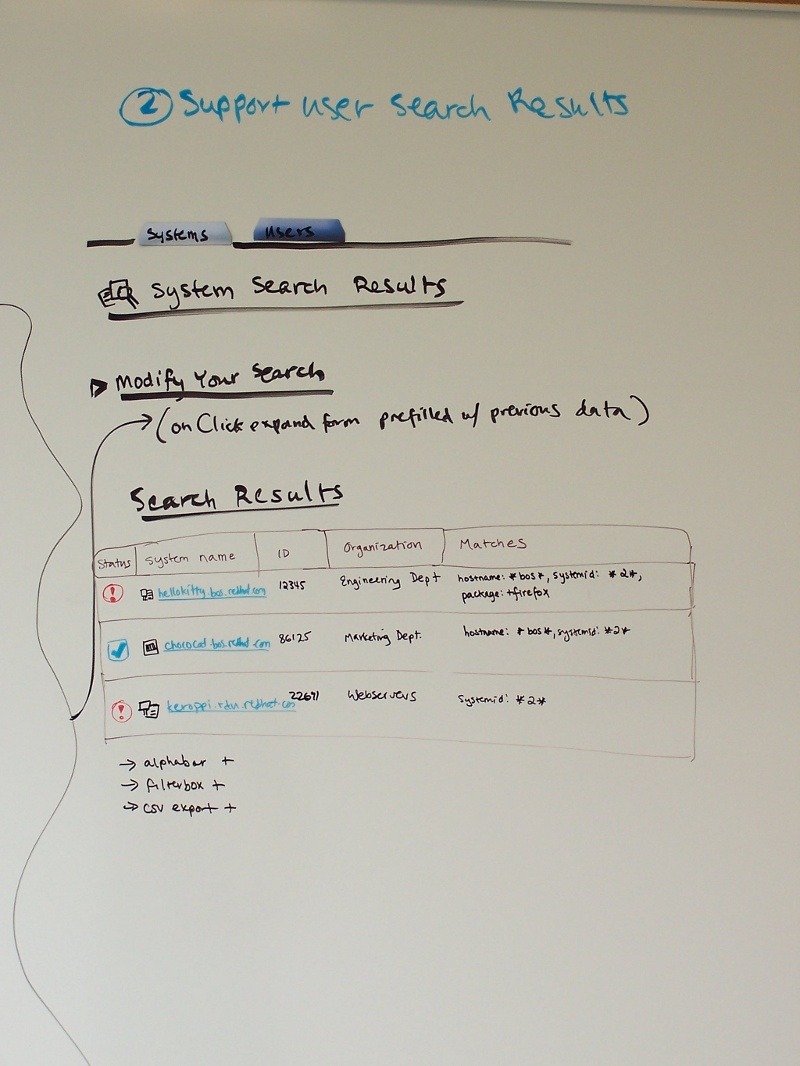 2 Support user search Results
Systems
Users
System Search Results
Modify Your Search
(on Click expand form prefilled w/ previous data)
Search Results
Status
System name
ID
Organization
Matches
hellokitty.bos.redhat.com
12345
Engineering Dept
hostname: *bos*, systemid: *2*,
package: +firefox
chococat.bos.redhat.com
86125
Marketing Dept.
hostname: *bos*, systemid: *2*
keroppi.rdu.redhat.com
22671
Webservers
systemid: *2*
→ alphabar +
→ filterbox +
→ csv export +